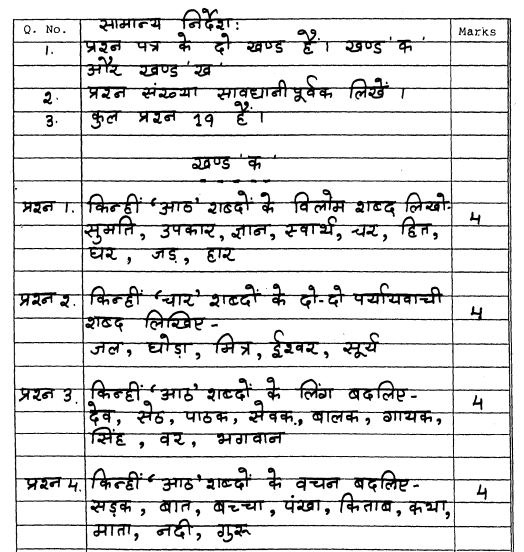 Q. No. सामान्य निर्देश: Marks
1. प्रश्न पत्र के दो खण्ड हैं। खण्ड 'क'
और खण्ड 'ख'
2. प्रश्न संख्या सावधानीपूर्वक लिखें।
3. कुल प्रश्न 19 हैं।
खण्ड 'क'
प्रश्न 1. किन्हीं 'आठ' शब्दों के विलोम शब्द लिखो-
सुमति, उपकार, ज्ञान, स्वार्थ, चर, हित, 4
घर, जड़, हार
प्रश्न 2. किन्हीं 'चार' शब्दों के दो-दो पर्यायवाची
शब्द लिखिए- 4
जल, घोड़ा, मित्र, ईश्वर, सूर्य
प्रश्न 3. किन्हीं 'आठ' शब्दों के लिंग बदलिए- 4
देव, सेठ, पाठक, सेवक, बालक, गायक,
सिंह, वर, भगवान
प्रश्न 4. किन्हीं 'आठ' शब्दों के वचन बदलिए- 4
सड़क, बात, बच्चा, पंखा, किताब, कथा,
माता, नदी, गुरू